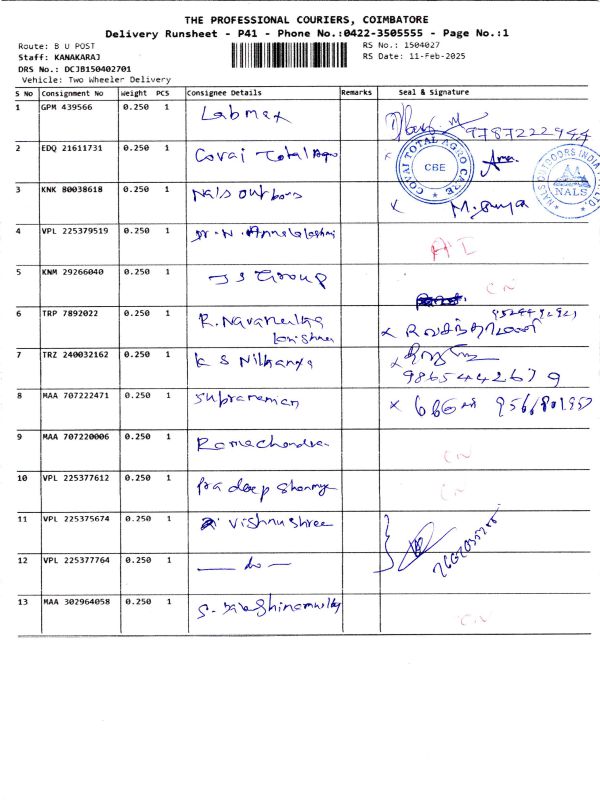 THE PROFESSIONAL COURIERS, COIMBATORE
Delivery Runsheet - P41 - Phone No.:0422-3505555 - Page No.:1
Route: B U POST
RS No.: 1504027
Staff: KANAKARAJ
RS Date: 11-Feb-2025
DRS No.: DCJB150402701
Vehicle: Two Wheeler Delivery
S No Consignment No Weight PCS Consignee Details Remarks Seal & signature
1 GPM 439566 0.250 1 Labmax 9787222944
2 EDQ 21611731 0.250 1 Covai Total Agro
COVAI TOTAL AGRO CARE
CBE
3 KNK B0038618 0.250 1 Nals Outdoors M. Surya
NALS OUTDOORS INDIA
NALS
4 VPL 225379519 0.250 1 A I
5 KNM 29266040 0.250 1 J S Group CN
6 TRP 7892022 0.250 1 R. Navaneetha
7 TRZ 240032162 0.250 1 K S Nithanya
9865442679
8 MAA 707222471 0.250 1 Subramanian
9 MAA 707220006 0.250 1 Ramachandran CN
10 VPL 225377612 0.250 1 Pradeep CN
11 VPL 225375674 0.250 1 Vishnushree
12 VPL 225377764 0.250 1 — do —
13 MAA 302964058 0.250 1 CN